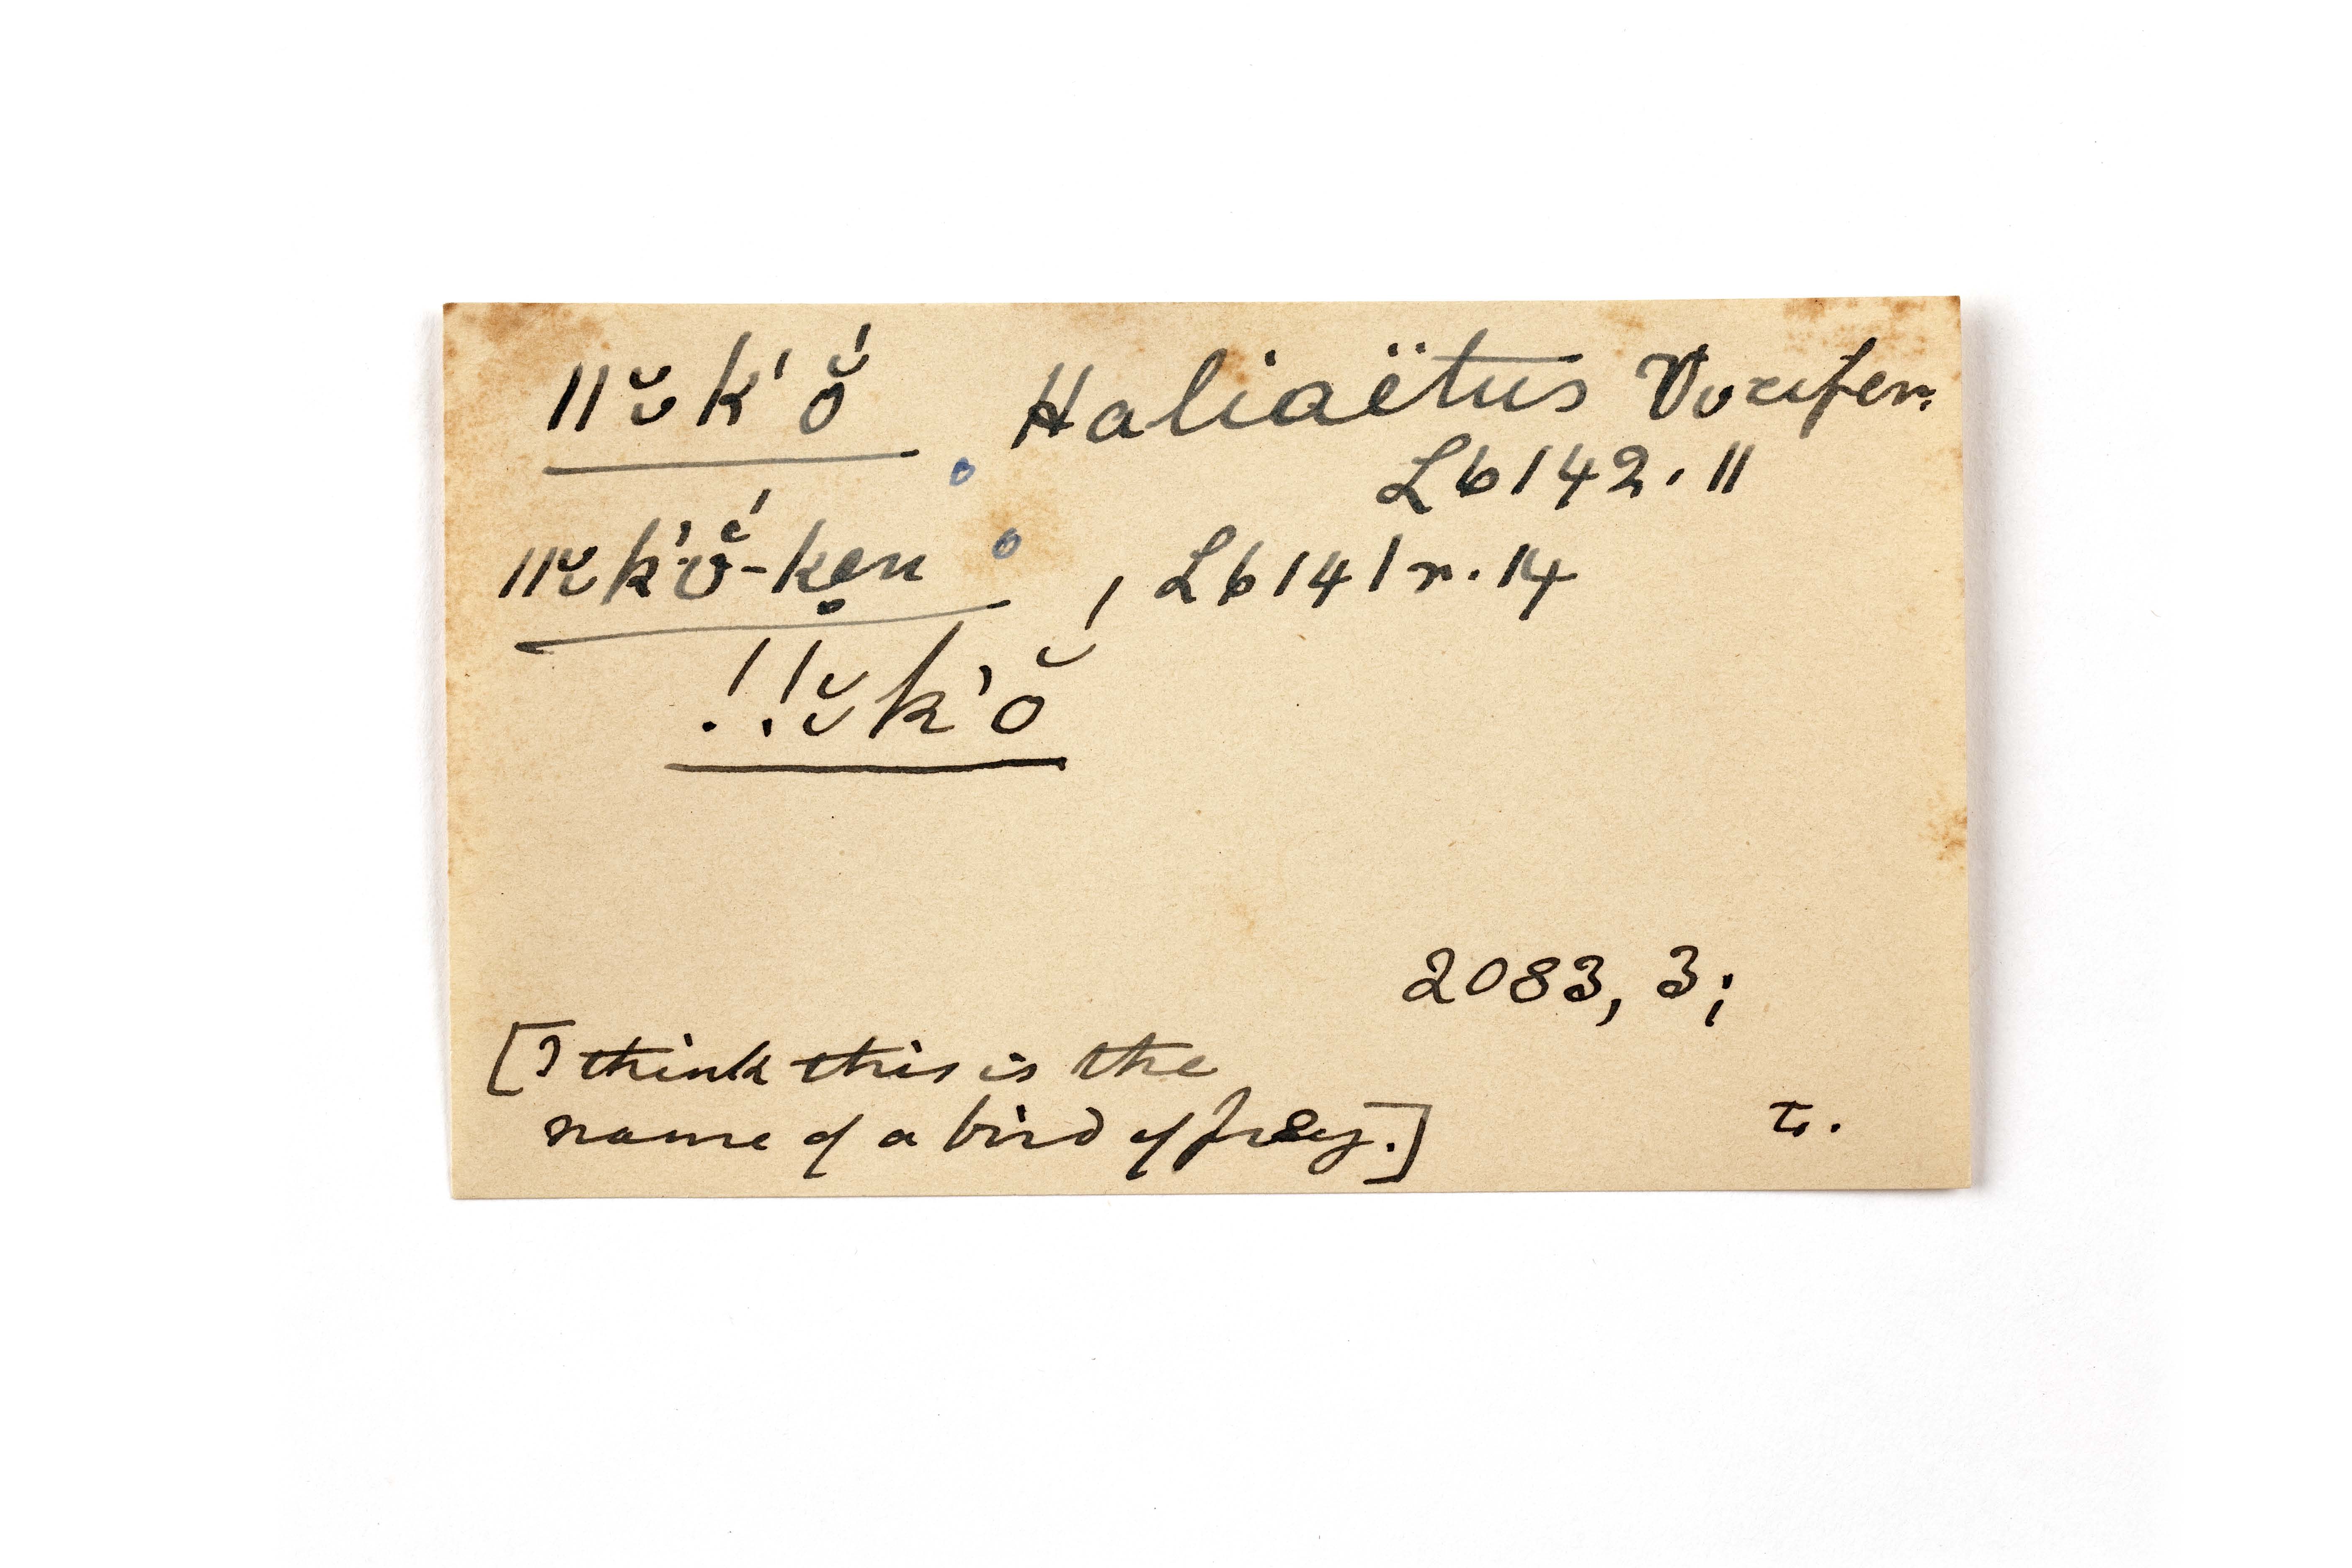 ǁῠk'ŏ́ Haliaëtus Vocifer.
L b 142. 11
ǁῠk'ŏ́-ken, L b 141 r. 14
!!ῠk'ŏ́
2083, 3;
[I think this is the
name of a bird of prey.]